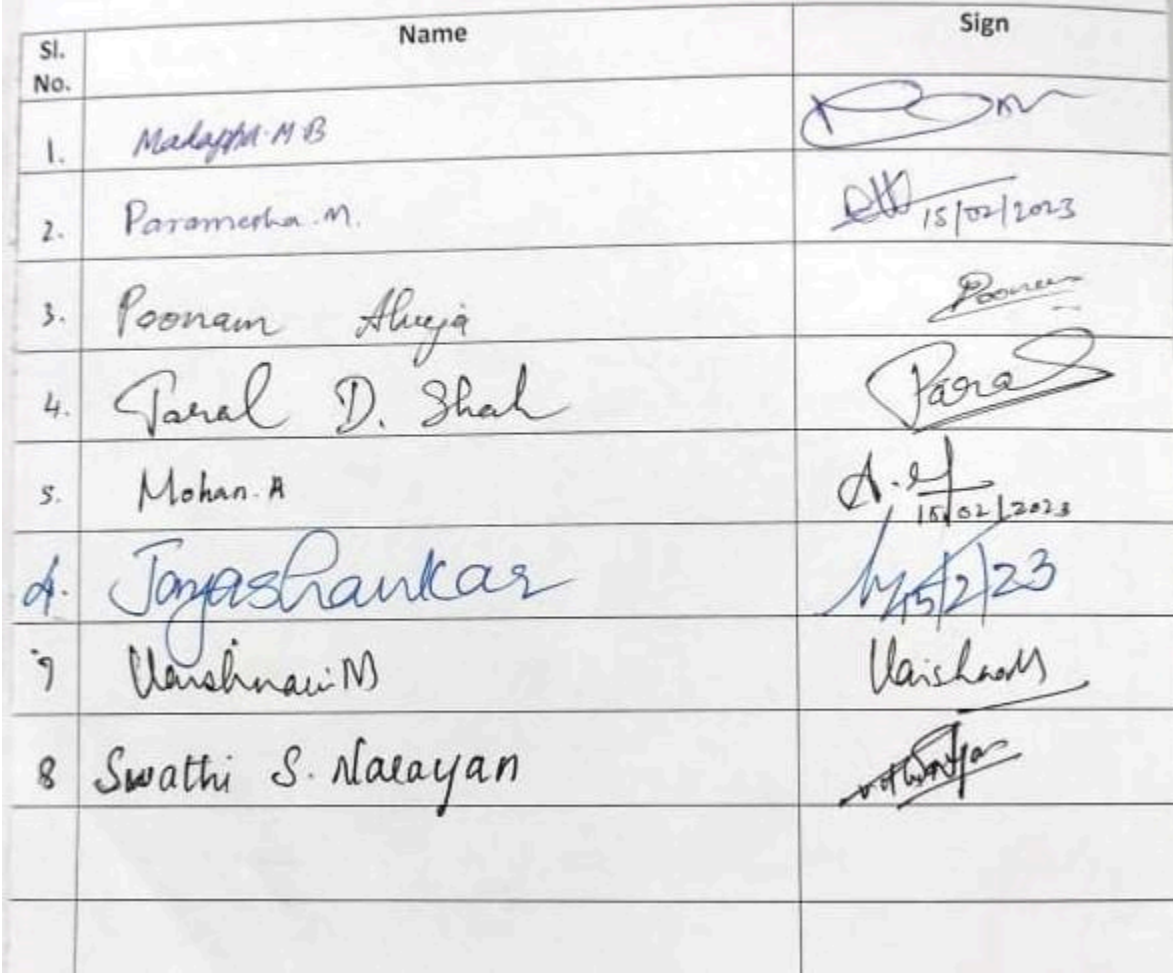 Sl. No. Name Sign
1. Madappa M B
2. Paramesha. M. 15/02/2023
3. Poonam Ahuja Poonam
4. Paral D. Shah Paral
5. Mohan. A A. 15/02/2023
Jayashankar 15/2/23
7 Vaishnavi M Vaishnavi
8 Swathi S. Narayan